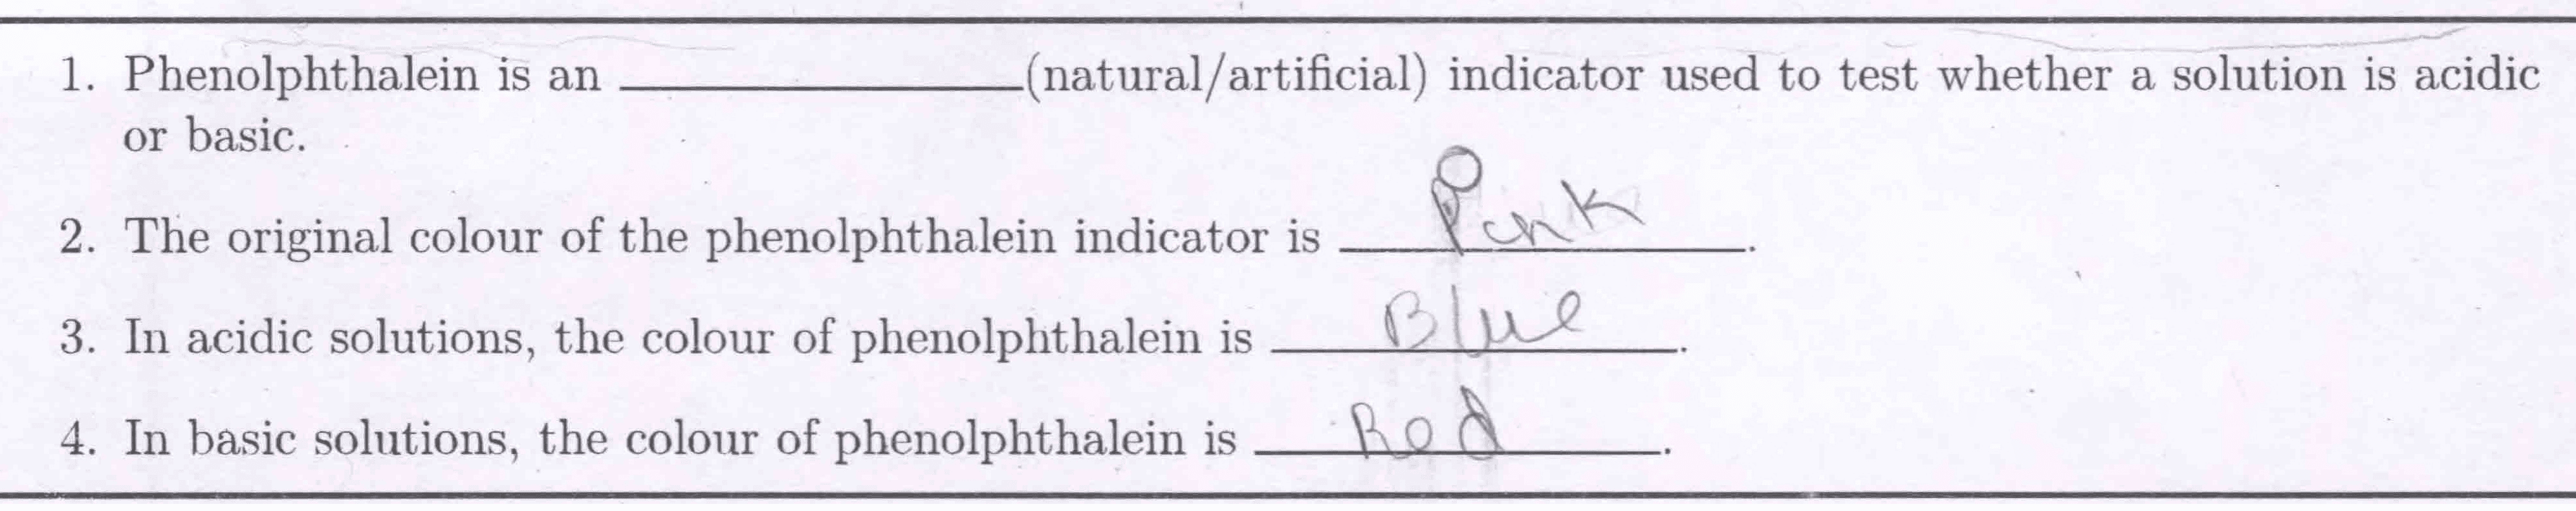 1. Phenolphthalein is an __________(natural/artificial) indicator used to test whether a solution is acidic
or basic.
2. The original colour of the phenolphthalein indicator is Pink.
3. In acidic solutions, the colour of phenolphthalein is Blue.
4. In basic solutions, the colour of phenolphthalein is Red.